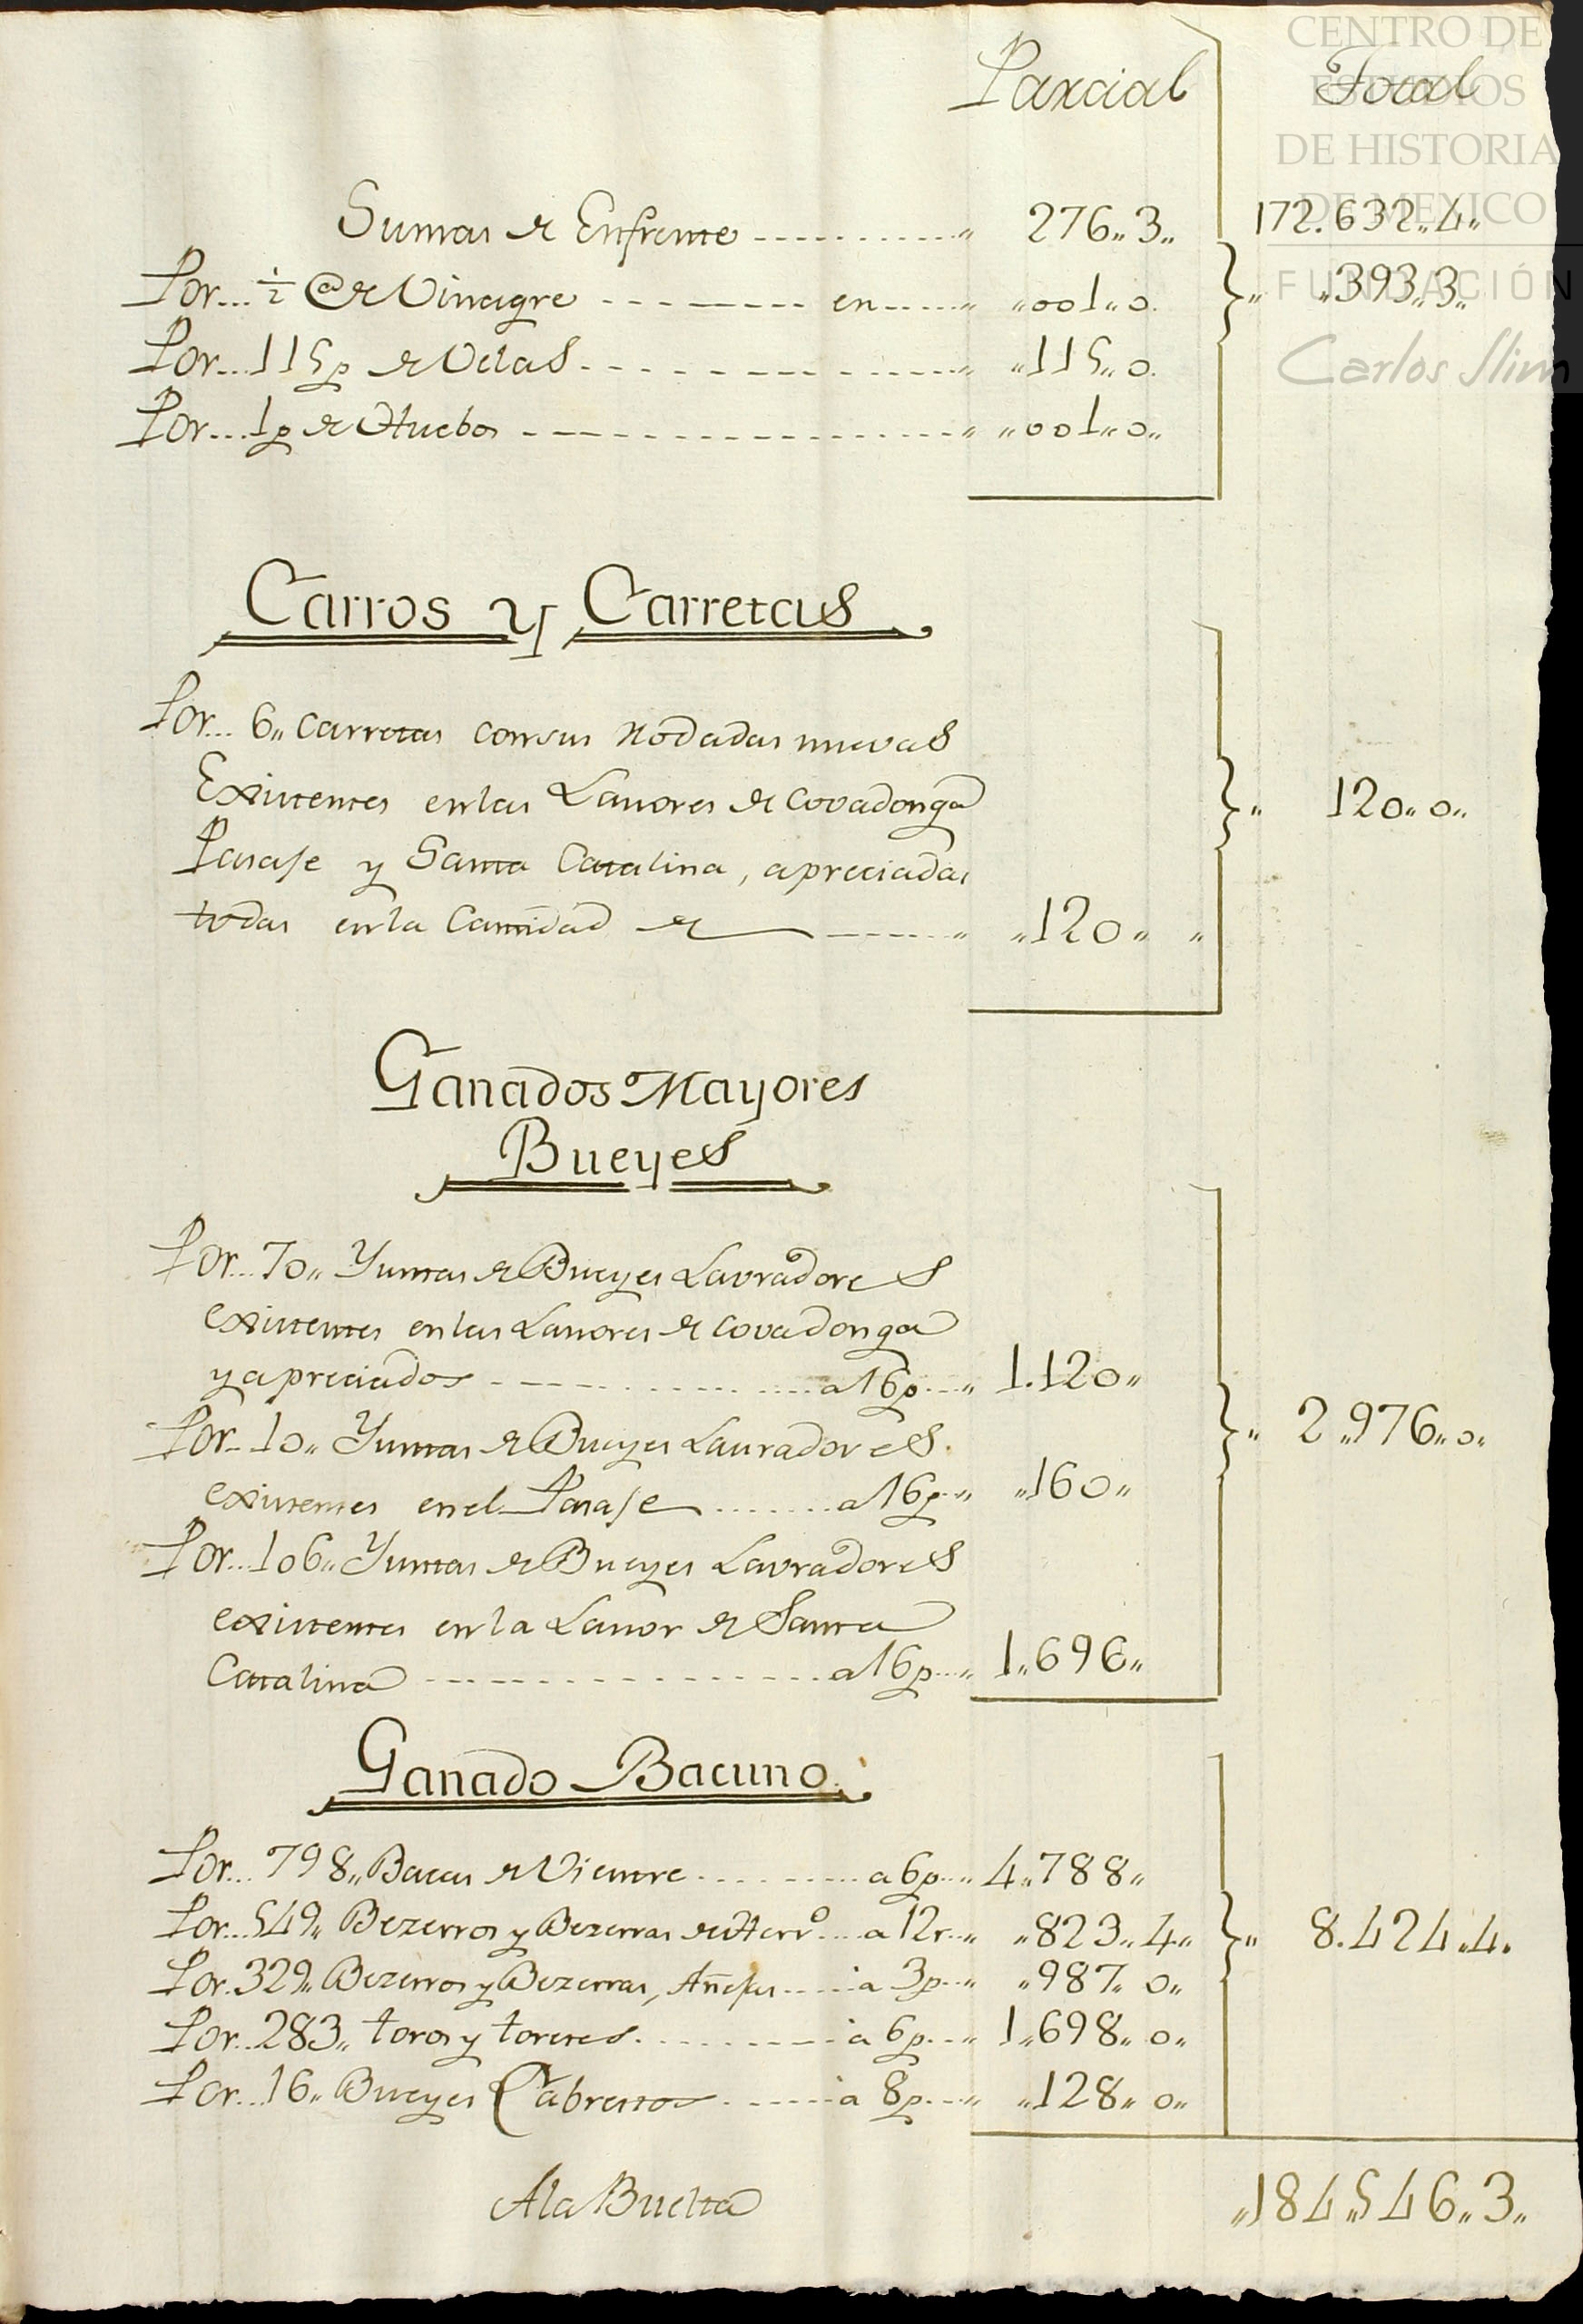 Parcial Total
CENTRO DE
ESTUDIOS
DE HISTORIA
DE MEXICO
FUNDACIÓN
Carlos Slim
Sumas de Enfrente ,, 276,,3,, 172.632,,4,,
Por... ½ @ de Vinagre en ,, ,,001,,0. ,, ,,393,,3,,
Por... 115p de Velas ,, ,,115,,0.
Por... 1p de Huebos ,, ,,001,,0,,
Carros y Carretas
Por... 6,, Carretas con sus Rodadas nuevas
Existentes en las Lavores de Covadonga
Parase y Santa Catalina, apreciadas
todas en la Cantidad de ,, ,,120,, ,, ,, 120,,0,,
Ganados Mayores
Bueyes
Por... 70,, Yuntas de Bueyes Lavradores
existentes en las Lavores de Covadonga
y apreciados a 16p ,, 1.120,,
Por.. 10,, Yuntas de Bueyes Lavradores. ,, 2,,976,,0,,
existentes en el Parase a 16p ,, ,,160,,
Por... 106,, Yuntas de Bueyes Lavradores
existentes en la Lavor de Santa
Catalina a 16p ,, 1,,696,,
Ganado Bacuno.
Por... 798,, Bacas de Vientre a 6p ,, 4,,788,,
Por... 549,, Bezerros y Bezerras de Herro a 12r ,, ,,823,,4,, ,, 8.424,,4.
Por. 329,, Bezerros y Bezerras, Añejas a 3p ,, ,,987,,0,,
Por... 283,, toros y toretes. a 6p ,, 1,,698,,0,,
Por... 16,, Bueyes Cabrestos a 8p ,, ,,128,,0,,
A la Buelta ,,184,,546,,3,,